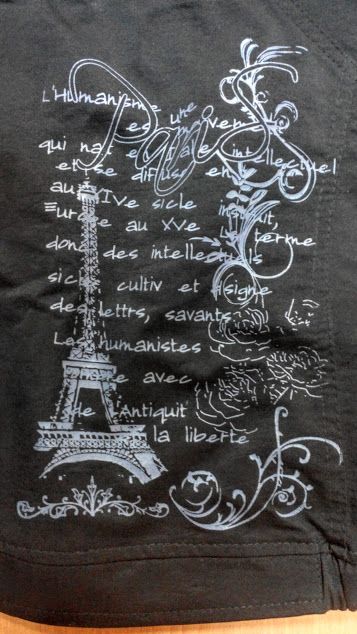 Paris
L'Humanisme
est une
mouvement
qui nat en Italie intellectuel
et se diffuse en
au XIVe sicle
Europe au XVe terme
donc des intellectuels
sicle cultiv et dsigne
des lettrs, savants
Les humanistes
avec
de l'Antiquit
la liberte